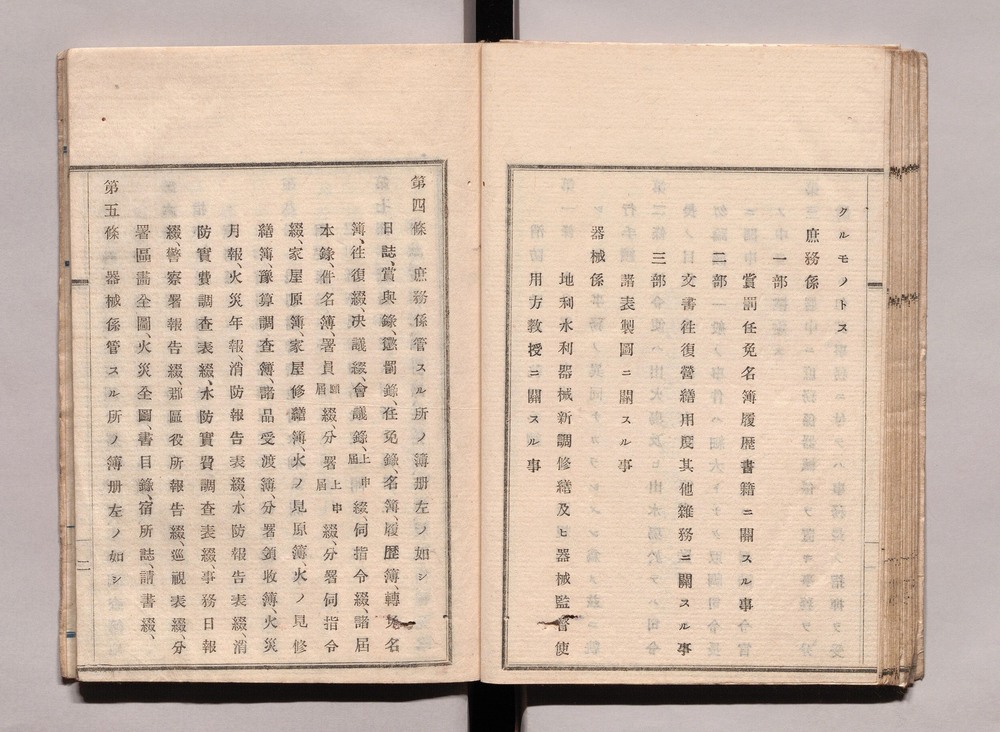 クルモノトス
庶務係
一部
賞罰任免名簿履歴書籍ニ關スル事
二部
文書往復營繕用度其他雜務ニ關スル事
三部
諸表製圖ニ關スル事
器械係
地利水利器械新調修繕及ヒ器械監督使
用方教授ニ關スル事
第四條 庶務係管スル所ノ簿册左ノ如シ
日誌、賞與錄、懲罰錄、任免錄、名簿、履歷簿、轉免名
簿、往復綴、決議綴、會議錄、上申届綴、伺指令綴、諸届
本錄、件名簿、署員願届綴、分署上申届綴、分署伺指令
綴、家屋原簿、家屋修繕簿、火ノ見原簿、火ノ見修
繕簿、豫算調查簿、諸品受渡簿、分署領收簿、火災
月報、火災年報、消防報告表綴、水防報告表綴、消
防實費調查表綴、水防實費調查表綴、事務日報
綴、警察署報告綴、郡區役所報告綴、巡視表綴、分
署區畫全圖、火災全圖、書目錄、宿所誌、請書綴、
第五條 器械係管スル所ノ簿册左ノ如シ
二